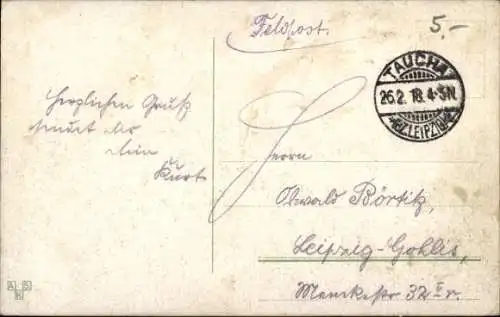 Feldpost.
5.-
TAUCHA
26.2.18.4-5N.
BZ. LEIPZIG
Herzlichen Gruß
sendet Dir
Dein
Kurt
Herrn
Oswald Börtitz,
Leipzig-Gohlis,
Menckestr 32 I r.